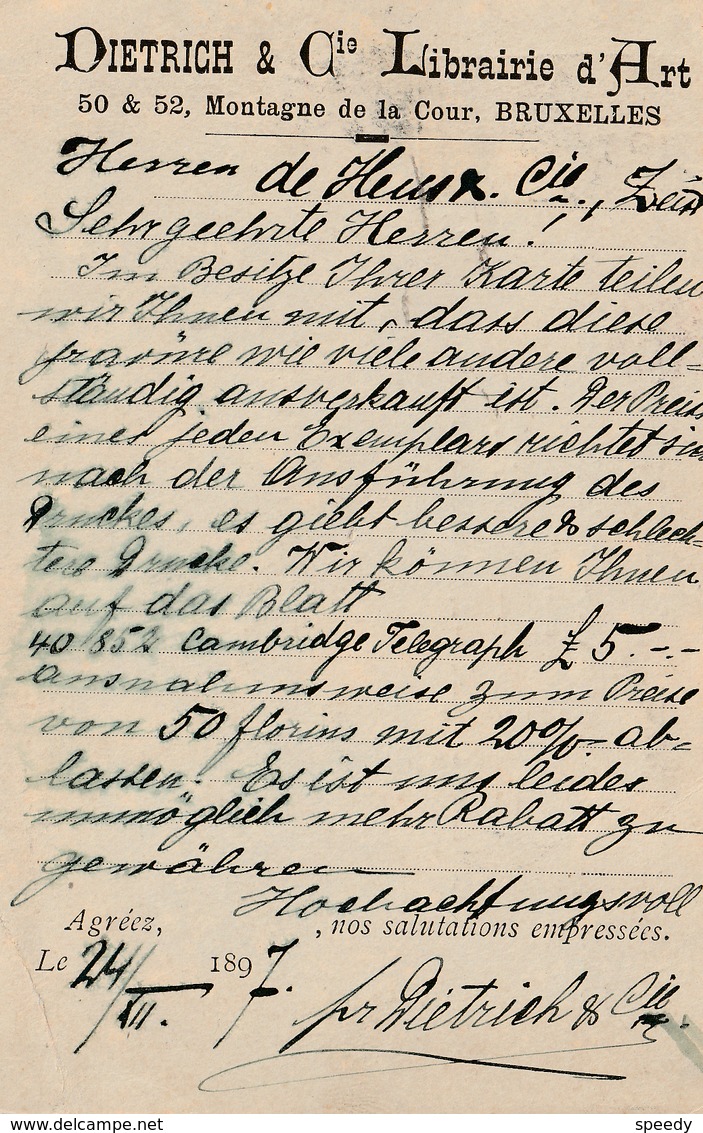 DIETRICH & Cie Librairie d'Art
50 & 52, Montagne de la Cour, BRUXELLES
Herren de Heus & Cie., Zeist
Sehr geehrte Herren!
Im Besitze Ihrer Karte teilen
wir Ihnen mit, dass diese
gravüre wie viele andere voll=
ständig ausverkauft ist. Der Preis
eines jeden Exemplars richtet sich
nach der Ausführung des
Druckes, es giebt bessere & schlech-
tere Drucke. Wir können Ihnen
auf das Blatt
40 852 Cambridge Telegraph £ 5.-.-
ausnahmsweise zum Preise
von 50 florins mit 20% ab=
lassen. Es ist uns leider
unmöglich mehr Rabatt zu
gewähren
Hochachtungsvoll
Agréez, , nos salutations empressées.
Le 24/III. 1897.
pr Dietrich & Cie.
www.delcampe.net speedy